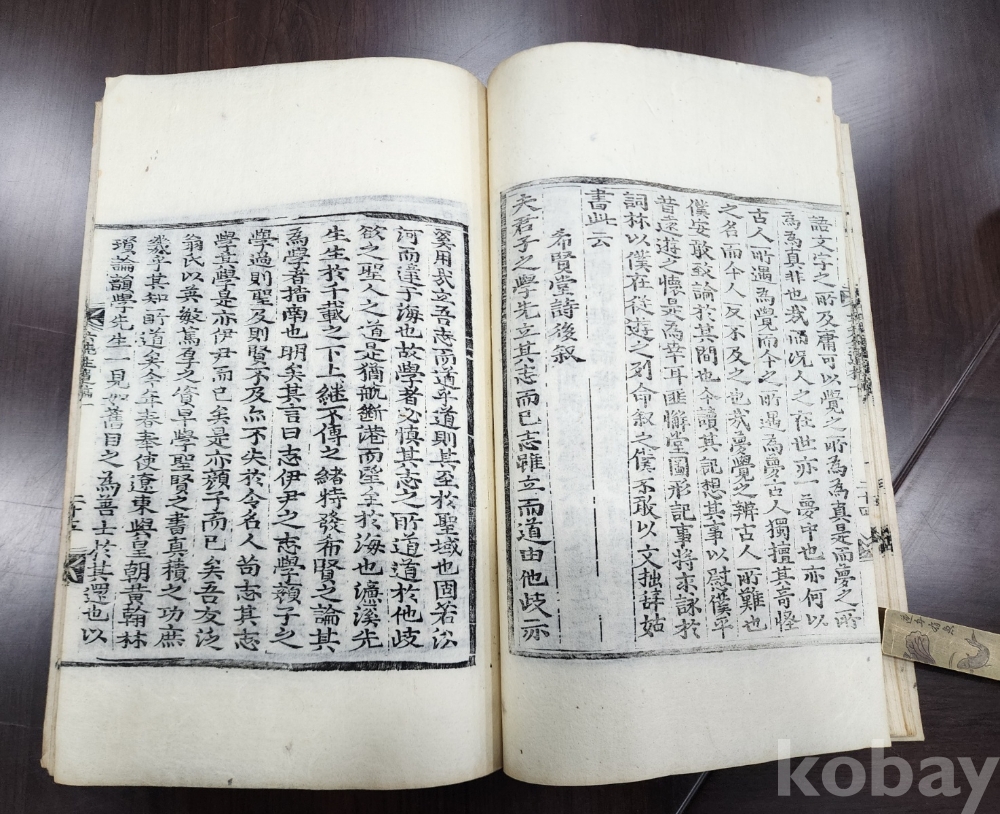 語文字之所及庸可以覺之所為為真是而夢之所
為為真非也哉而況人之在世亦一夢中也亦何以
古人所遇為覺而今之所遇為夢古人獨擅其奇怪
之名而今人反不及之也哉夢覺之辨古人所難也
僕安敢致論於其間也今讀其記想其事以慰僕平
昔遠遊之懷是為幸耳匪懈堂圖形記事將求詠於
詞林以僕在從遊之列命叙之僕不敢以文拙辞姑
書此云
希賢堂詩後叙
夫君子之學先立其志而已志雖立而道由他歧亦
奚用哉立吾志而道乎道則其至於聖域也固若沿
河而達于海也故學者必慎其志之所道道於他歧
欲之聖人之道是猶航斷港而望至於海也濂溪先
生生於千載之下上継不傳之緒特發希賢之論其
為學者指南也明矣其言曰志伊尹之志學顔子之
學過則聖及則賢不及亦不失於令名人苟志其志
學其學是亦伊尹而已矣是亦顔子而已矣吾友泛
翁氏以英敏篤厚之資早學聖賢之書真積之功庶
幾乎其知所道矣今年春奉使遼東與皇朝黃翰林
瓚論韻學先生一見如舊目之為善士於其還也以
二十五
kobay